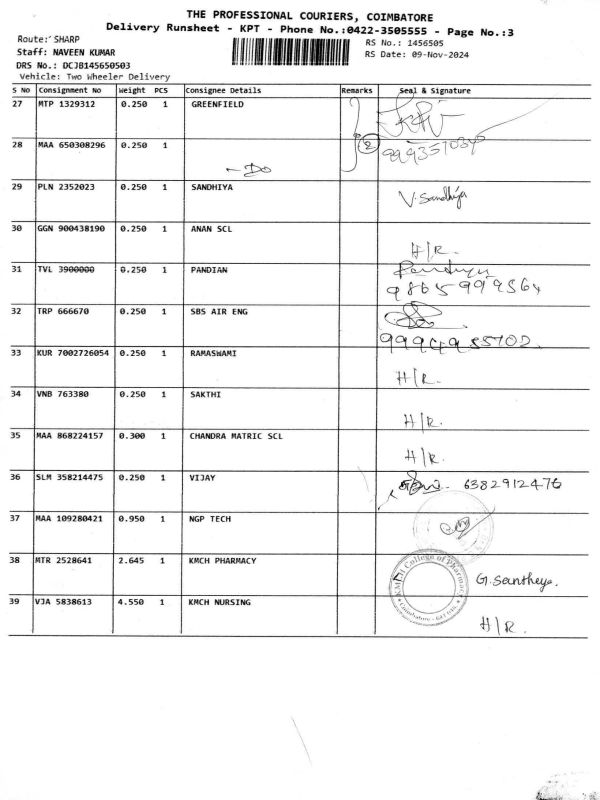 THE PROFESSIONAL COURIERS, COIMBATORE
Delivery Runsheet - KPT - Phone No.:0422-3505555 - Page No.:3
Route: SHARP
RS No.: 1456505
Staff: NAVEEN KUMAR
RS Date: 09-Nov-2024
DRS No.: DCJB145650503
Vehicle: Two Wheeler Delivery
S No Consignment No Weight PCS Consignee Details Remarks Seal & Signature
27 MTP 1329312 0.250 1 GREENFIELD
28 MAA 650308296 0.250 1 2
- Do
29 PLN 2352023 0.250 1 SANDHIYA V. Sandhiya
30 GGN 900438190 0.250 1 ANAN SCL
H/R.
31 TVL 3900000 0.250 1 PANDIAN
32 TRP 666670 0.250 1 SBS AIR ENG
33 KUR 7002726054 0.250 1 RAMASWAMI
H/R.
34 VNB 763380 0.250 1 SAKTHI
H/R.
35 MAA 868224157 0.300 1 CHANDRA MATRIC SCL
H/R.
36 SLM 358214475 0.250 1 VIJAY 6382912476
37 MAA 109280421 0.950 1 NGP TECH
38 MTR 2528641 2.645 1 KMCH PHARMACY
KMCH College of Pharmacy
39 VJA 5838613 4.550 1 KMCH NURSING
H/R.